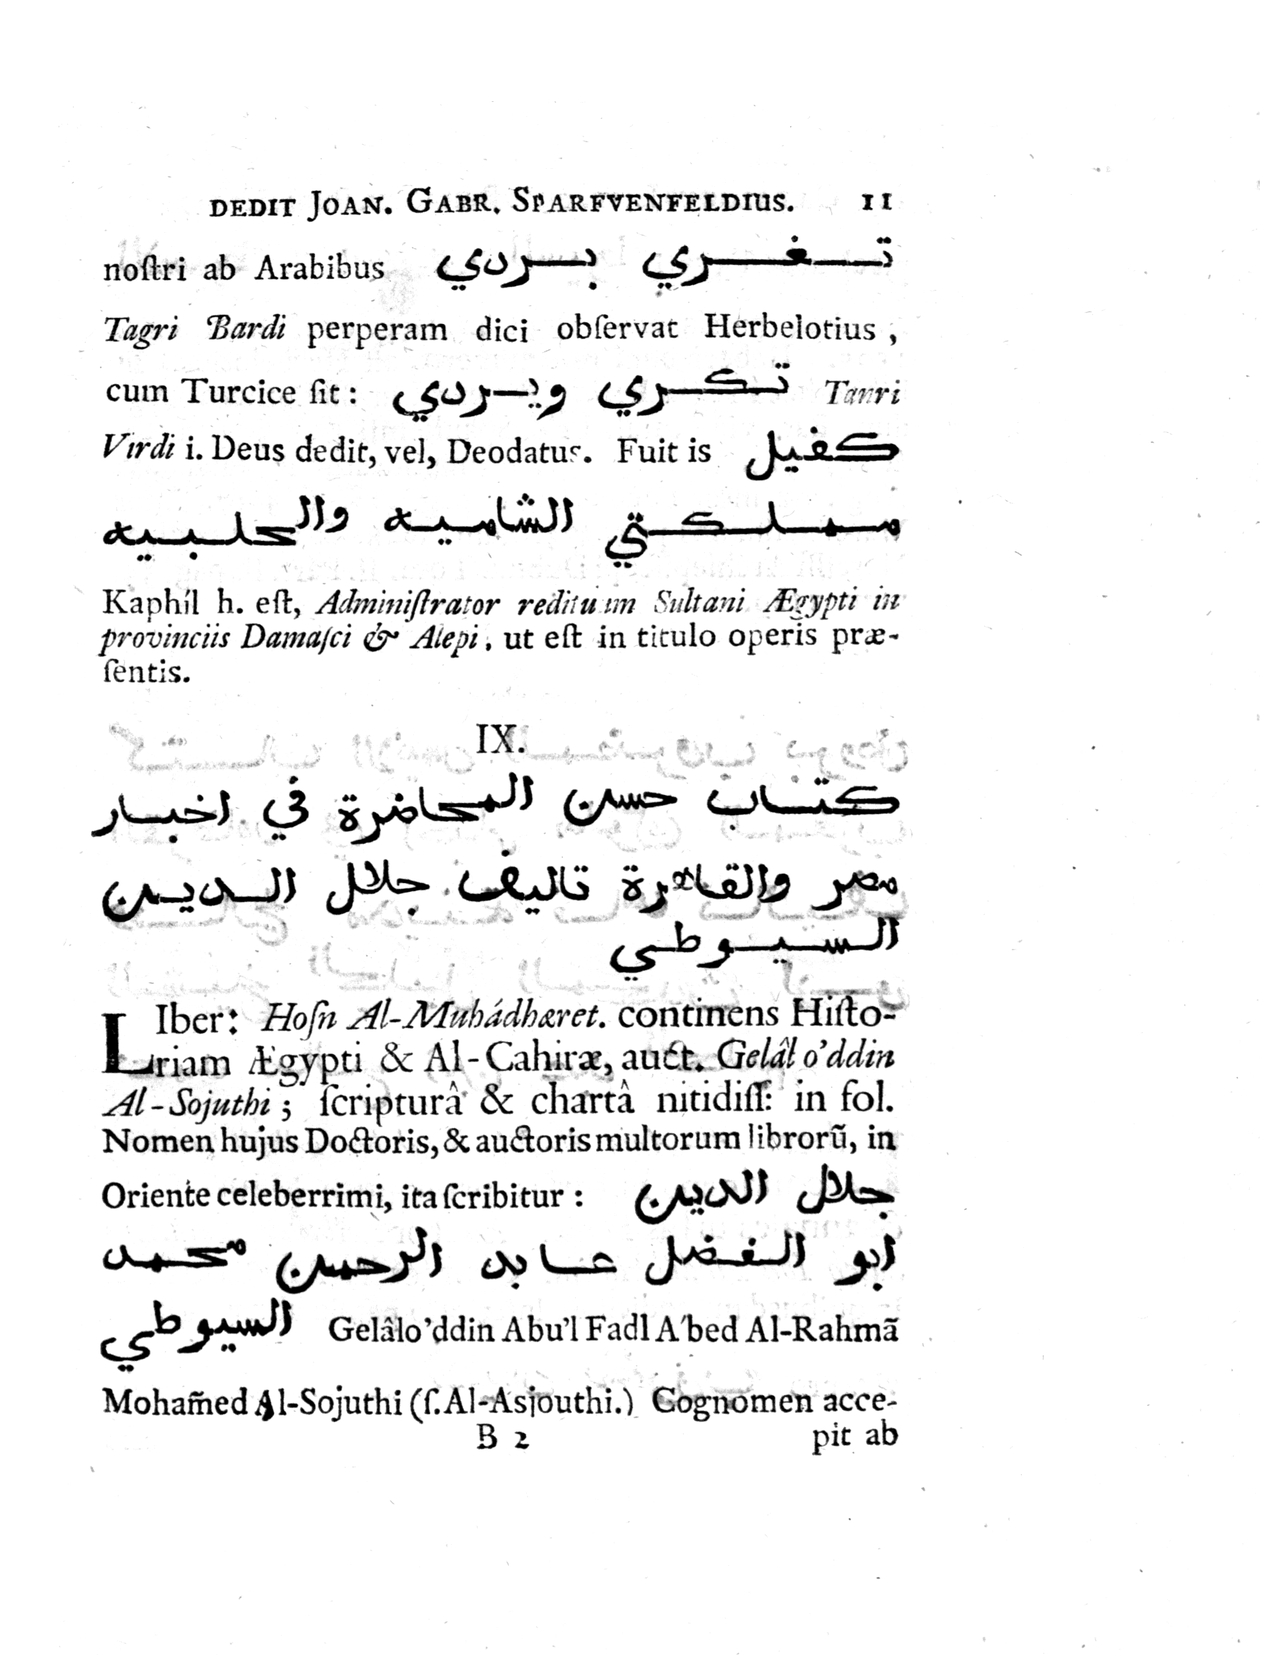 DEDIT JOAN. GABR. SPARFVENFELDIUS. 11
noſtri ab Arabibus تغري بردي
Tagri Bardi perperam dici obſervat Herbelotius ,
cum Turcice ſit : تكري ويردي Tanri
Virdi i. Deus dedit, vel, Deodatus. Fuit is كفيل
مملكتي الشاميه والحلبيه
Kaphíl h. eſt, Adminiſtrator redituum Sultani Ægypti in
provinciis Damaſci & Alepi, ut eſt in titulo operis præ-
ſentis.
IX.
كتاب حسن المحاضرة في اخبار
مصر والقاهرة تاليف جلال الدين
السيوطي
LIber: Hoſn Al-Muhádhæret. continens Hiſto-
riam Ægypti & Al-Cahiræ, auct. Gelâl o'ddin
Al-Sojuthi ; ſcripturâ & chartâ nitidiſſ: in fol.
Nomen hujus Doctoris, & auctoris multorum librorũ, in
Oriente celeberrimi, ita ſcribitur : جلال الدين
ابو الفضل عابد الرحمن محمد
السيوطي Gelâlo'ddin Abu'l Fadl A'bed Al-Rahmã
Moham̃ed Al-Sojuthi (ſ. Al-Asjouthi.) Cognomen acce-
B 2 pit ab